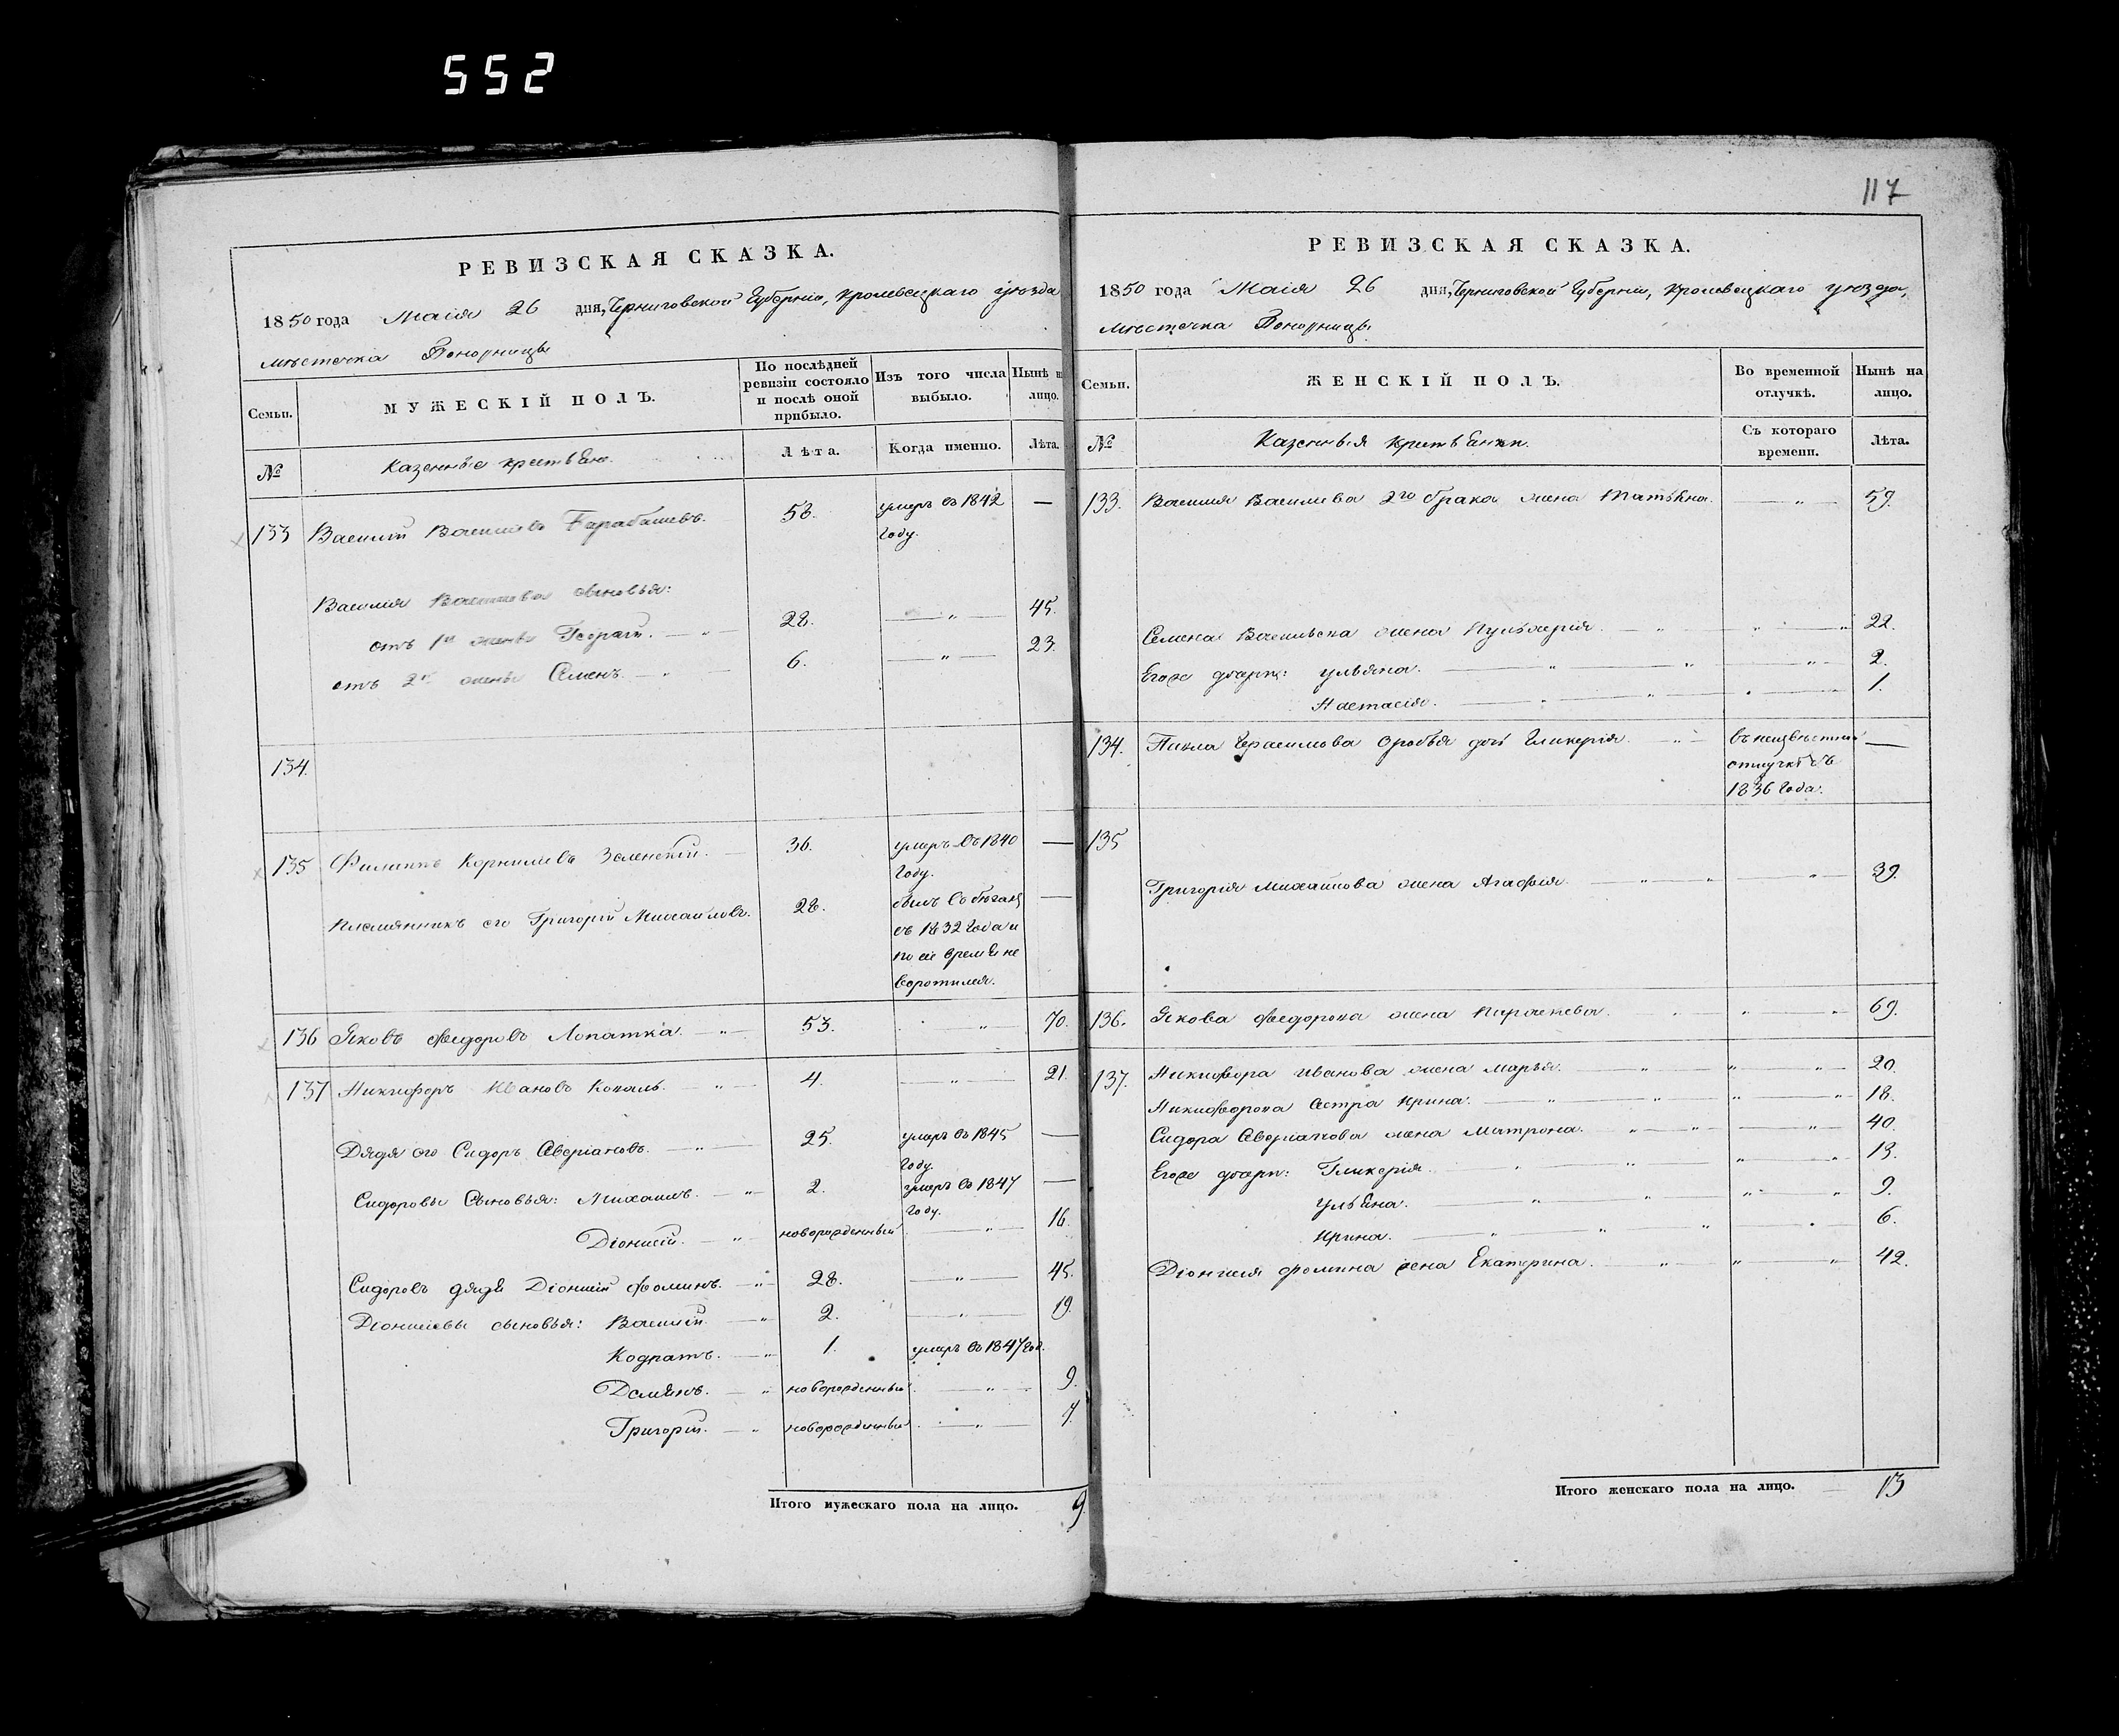 552
117
РЕВИЗСКАЯ СКАЗКА.
1850 года Маія 26 дня, Черниговской Губерніи, Кролевецкаго уѣзда
мѣстечка Понорницы
Семьи.
МУЖЕСКІЙ ПОЛЪ.
По послѣдней ревизіи состояло и послѣ оной прибыло.
Изъ того числа выбыло.
Нынѣ на лицо.
№
Казенные крестьяне.
Лѣта.
Когда именно.
Лѣта.
133 Василий Васильевъ Барабашевъ. 58. умеръ въ 1842 —
году.
Василія Васильева сыновья:
отъ 1й жены Георгій. — " — 28. — " — 45.
отъ 2й жены Семенъ. — " — 6. — " — 23.
134.
135 Филиппъ Корнилиевъ Зеленский. — 36. умеръ въ 1840 —
году.
Племянникъ его Григорій Михаиловъ. 28. —
съ 1832 года и
по сіе время не
воротился.
136 Яковъ Федоровъ Лопатка. — " — 53. " 70.
137 Никифоръ Ивановъ Коваль. — " — 4. — " — 21.
Дядя его Сидоръ Аверіановъ. — " — 25. умеръ въ 1845 —
году.
Сидоровы Сыновья: Михаилъ. — " — 2. умеръ въ 1847 —
году.
Діонисій. — " — новорожденный — " — 16.
Сидоровъ дядя Діонисий Фоминъ. — " — 28. — " — 45.
Діонисіевы сыновья: Василий. — " 2. — " — 19.
Кодратъ. — " — 1. умеръ въ 1847 год.
Демянъ. — " новорожденный — " — 9.
Григорій. — " новорожденный — " — 7.
Итого мужескаго пола на лицо. 9.
РЕВИЗСКАЯ СКАЗКА.
1850 года Маія 26 дня, Черниговской Губерніи, Кролевецкаго уѣзда,
мѣстечка Понорницы
Семьи.
ЖЕНСКІЙ ПОЛЪ.
Во временной отлучкѣ.
Нынѣ на лицо.
№
Казенныя крестьянки.
Съ котораго времени.
Лѣта.
133. Василия Васильева 2го брака жена Татьяна. — " — 59.
Семена Васильева жена Пульхерія. — " " — " 22.
Егоже дочери: Ульяна. — " — " — " — 2.
Настасія. — " — " — 1.
134. Павла Герасимова дочь Гликерія. — " — въ неизвѣстной —
отлучкѣ съ
1836 года.
135
Григорія Михайлова жена Агафія. — " — " — " — 39.
136. Якова Федорова жена Параскева. " " 69.
137. Никифора Иванова жена Марья. — " — " — " — 20.
Никифорова Сестра Ирина. — " — " — " — " 18.
Сидора Аверіанова жена Матрона. — " — " — " — 40.
Егоже дочери: Гликерія. — " — " — " — " 13.
Ульяна. — " — " — " — " 9.
Ирина. — " — " — " — 6.
Діонисія Фомина жена Екатерина. — " — " — " 42.
Итого женскаго пола на лицо. — 13